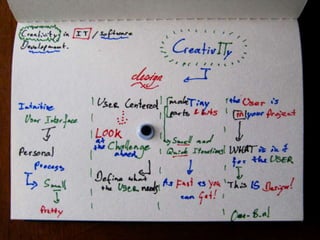 Creativity in IT / Software
Development.
CreativITy
design
Intuitive
User Interface
Personal
Process
Small
pretty
User Centered
LOOK
at
the Challenge
ahead
Define what
the user needs
made Tiny
parts & bits
by Small and
Quick Iterations
As Fast as you
can Get!
the User is
in your Project
WHAT is in it
for the USER
This IS Design!